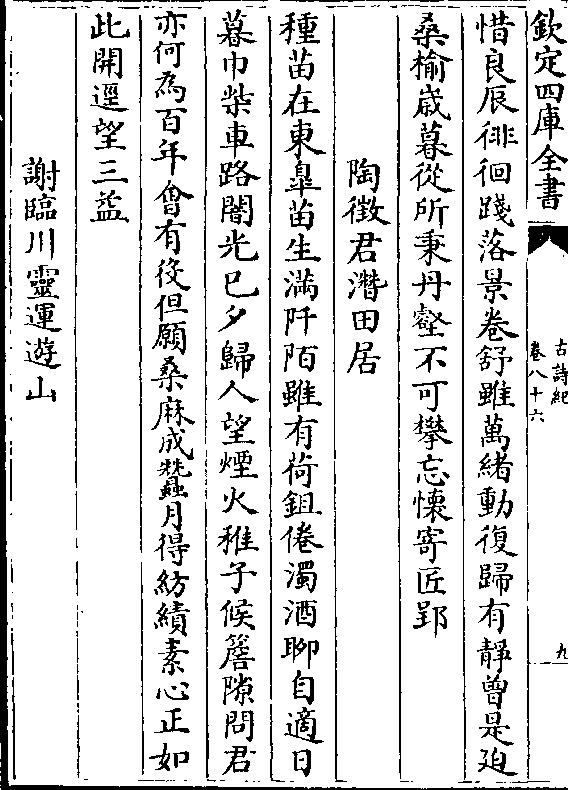 欽定四庫全書
古詩紀
卷八十六
九
惜良辰徘徊踐落景卷舒雖萬緒動復歸有靜曾是廹
桑榆歲暮從所秉丹壑不可攀忘懷寄匠郢
陶徴君潛田居
種苗在東臯苗生滿阡陌雖有荷鉏倦濁酒聊自適日
暮巾柴車路闇光已夕歸人望煙火稚子候簷隙問君
亦何為百年㑹有役但願桑麻成蠶月得紡績素心正如
此開逕望三益
謝臨川靈運遊山